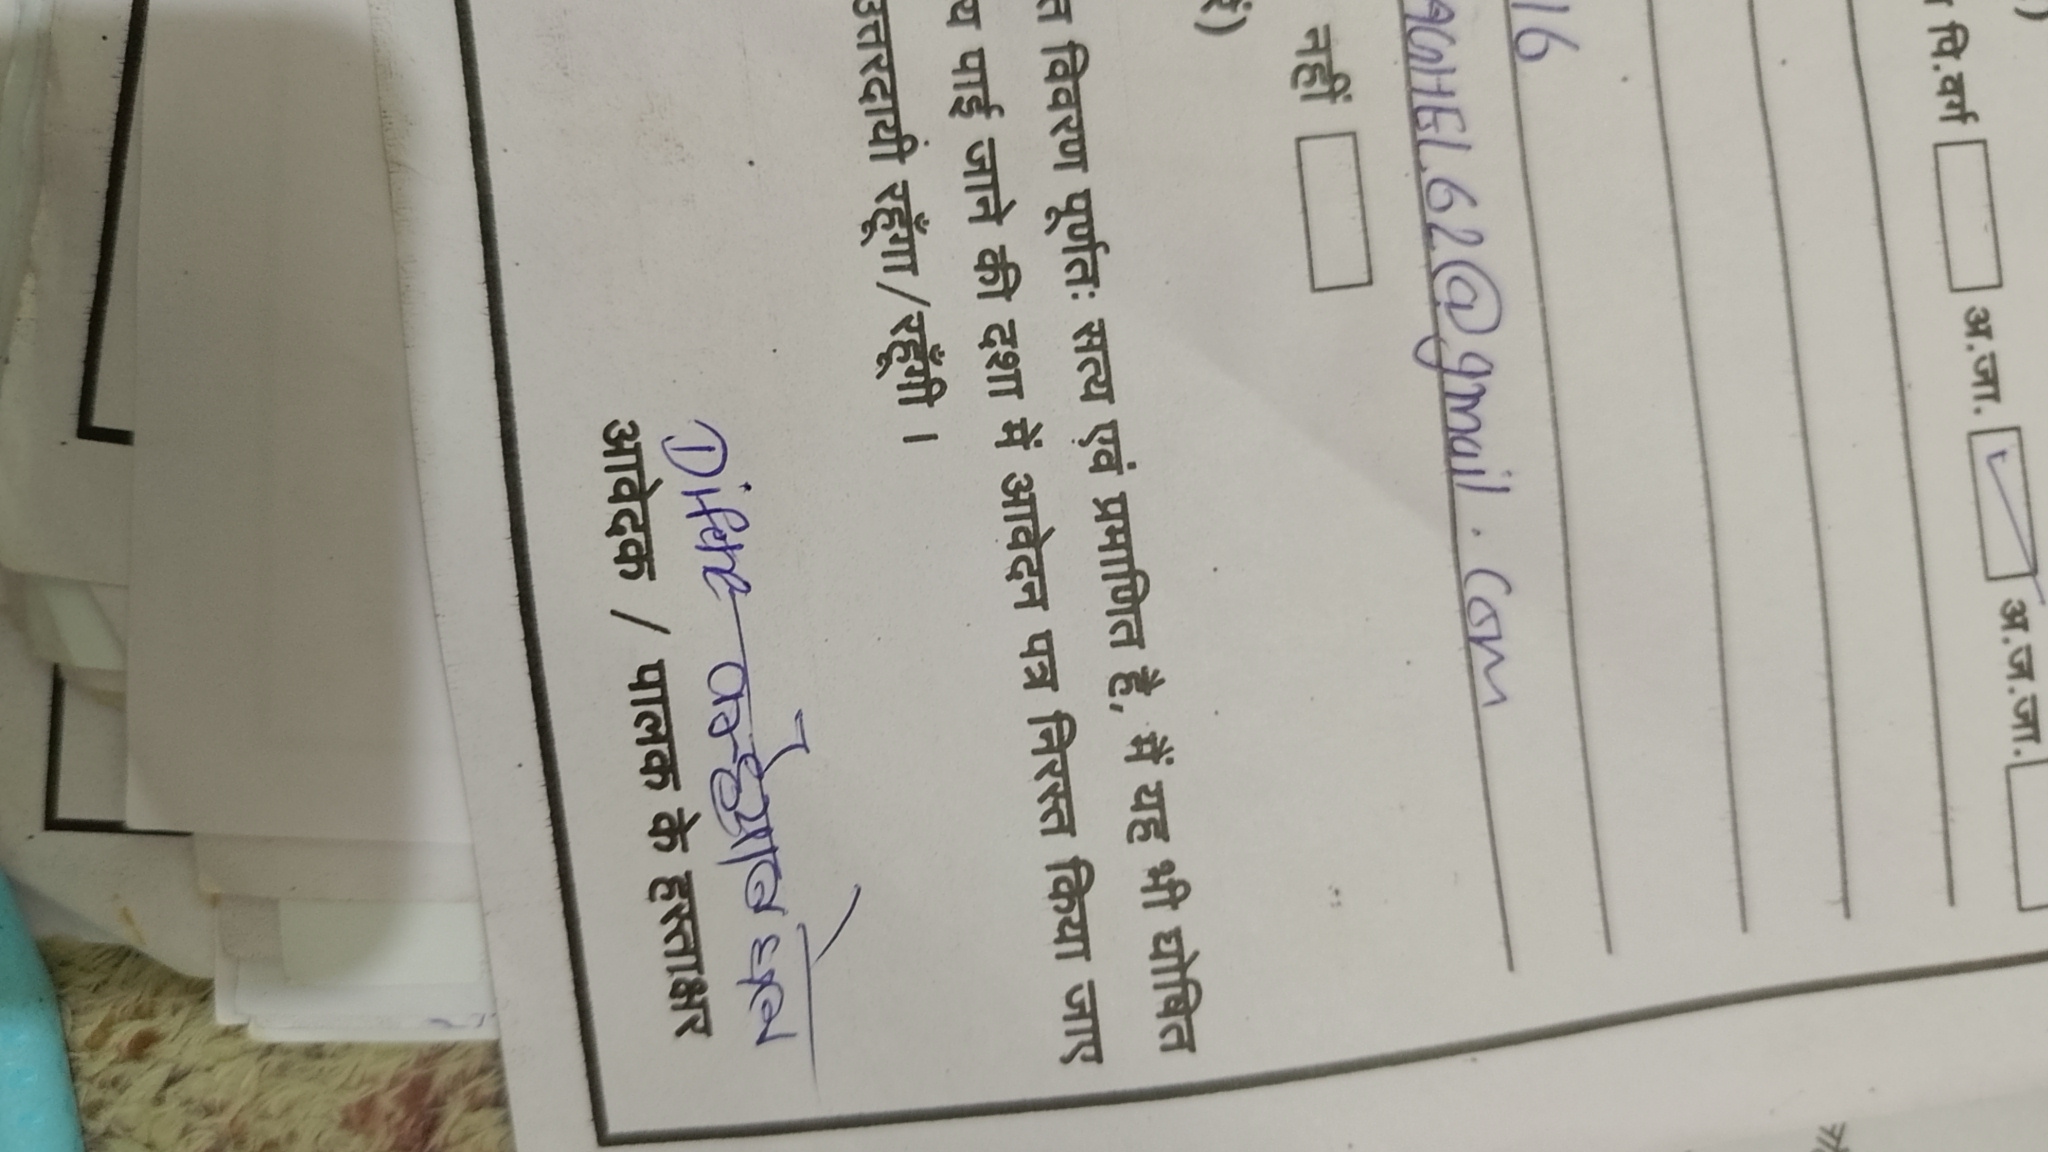 पि.वर्ग अ.जा. अ.ज.जा.
16
62@gmail.com
नहीं
विवरण पूर्णतः सत्य एवं प्रमाणित है, मैं यह भी घोषित
पाई जाने की दशा में आवेदन पत्र निरस्त किया जाए
उत्तरदायी रहूँगा/रहूँगी।
आवेदक / पालक के हस्ताक्षर